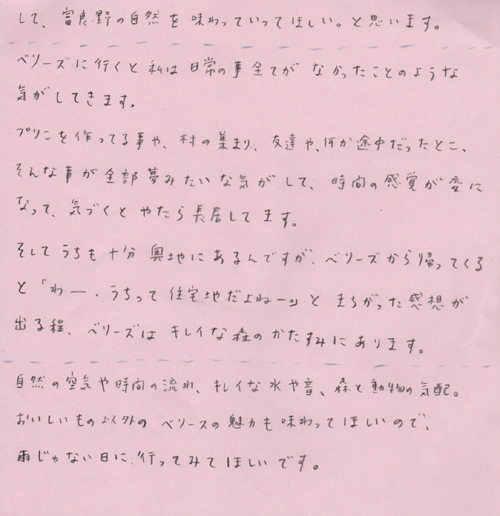 して、富良野の自然を味わっていってほしい。と思います。
ベリーズに行くと私は日常の事全てがなかったことのような
気がしてきます。
プリンを作ってる事や、村の集まり、友達や、何か途中だったとこ、
そんな事が全部夢みたいな気がして、時間の感覚が変に
なって、気づくとやたら長居してます。
そしてうちも十分奥地にあるんですが、ベリーズから帰ってくる
と「わー、うちって住宅地だよねー」と まちがった感想が
出る程、ベリーズはキレイな森のかたすみにあります。
自然の空気や時間の流れ、キレイな水や音、森と動物の気配。
おいしいもの以外のベリーズの魅力も味わってほしいので、
雨じゃない日に、行ってみてほしいです。